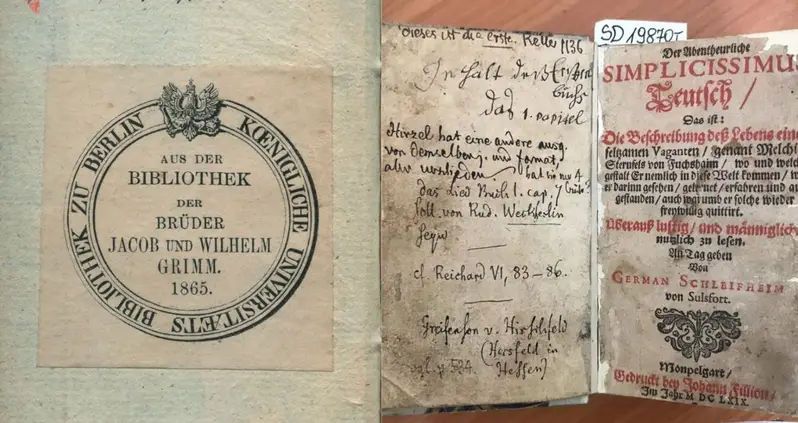 KŒNIGLICHE UNIVERSITÆTS BIBLIOTHEK ZU BERLIN
AUS DER
BIBLIOTHEK
DER
BRÜDER
JACOB UND WILHELM
GRIMM.
1865.
dieses ist die erste. Keller 1136
Inhalt deß Ersten
buchs
das 1. capitel
Hirzel hat eine andere ausg.
von demselben j. und format,
aber verschieden
das Lied Buch 1. cap. 7
soll von Rud. Weckherlin
seyn
cf. Reichard VI, 83-86.
Greifenson v. Hirschfeld
(Hersfeld in
Hessen)
SD 19870
Der Abentheurliche
SIMPLICISSIMUS
Teutsch /
Das ist:
Die Beschreibung deß Lebens eine
seltzamen Vaganten / genant Melchio
Sternfels von Fuchshaim / wo und welche
gestalt Er nemlich in diese Welt kommen / w
er darinn gesehen / gelernet / erfahren und au
gestanden / auch warumb er solche wieder
freywillig quittirt.
Überauß lustig / und männiglich
nutzlich zu lesen.
An Tag geben
Von
GERMAN SCHLEIFHEIM
von Sulsfort.
Monpelgart /
Gedruckt bey Johann Fillion /
Im Jahr M DC LXIX.